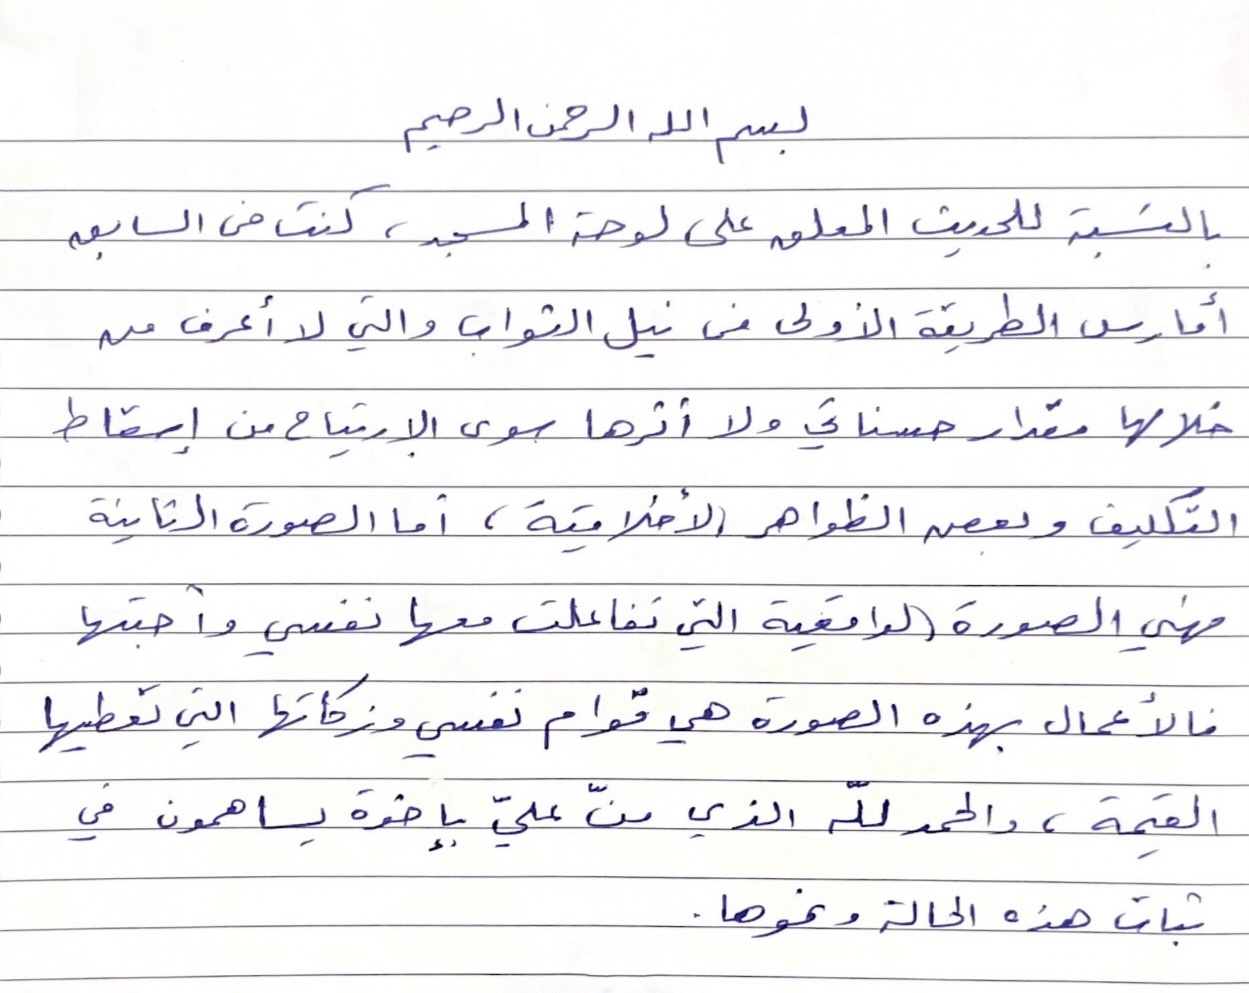 بسم الله الرحمن الرحيم
بالنسبة للحديث المعلق على لوحة المسجد، كنت في السابق
أمارس الطريقة الأولى في نيل الثواب والتي لا أعرف من
خلالها مقدار حسناتي ولا أثرها سوى الإرتياح من إسقاط
التكليف وبعض الظواهر الأخلاقية، أما الصورة الثانية
فهي الصورة الواقعية التي تفاعلت معها نفسي وأحبتها
فالأعمال بهذه الصورة هي قوام نفسي وزكاتها التي تعطيها
القيمة، والحمد للّه الذي منّ عليّ بإخوة يساهمون في
ثبات هذه الحالة ونموها.